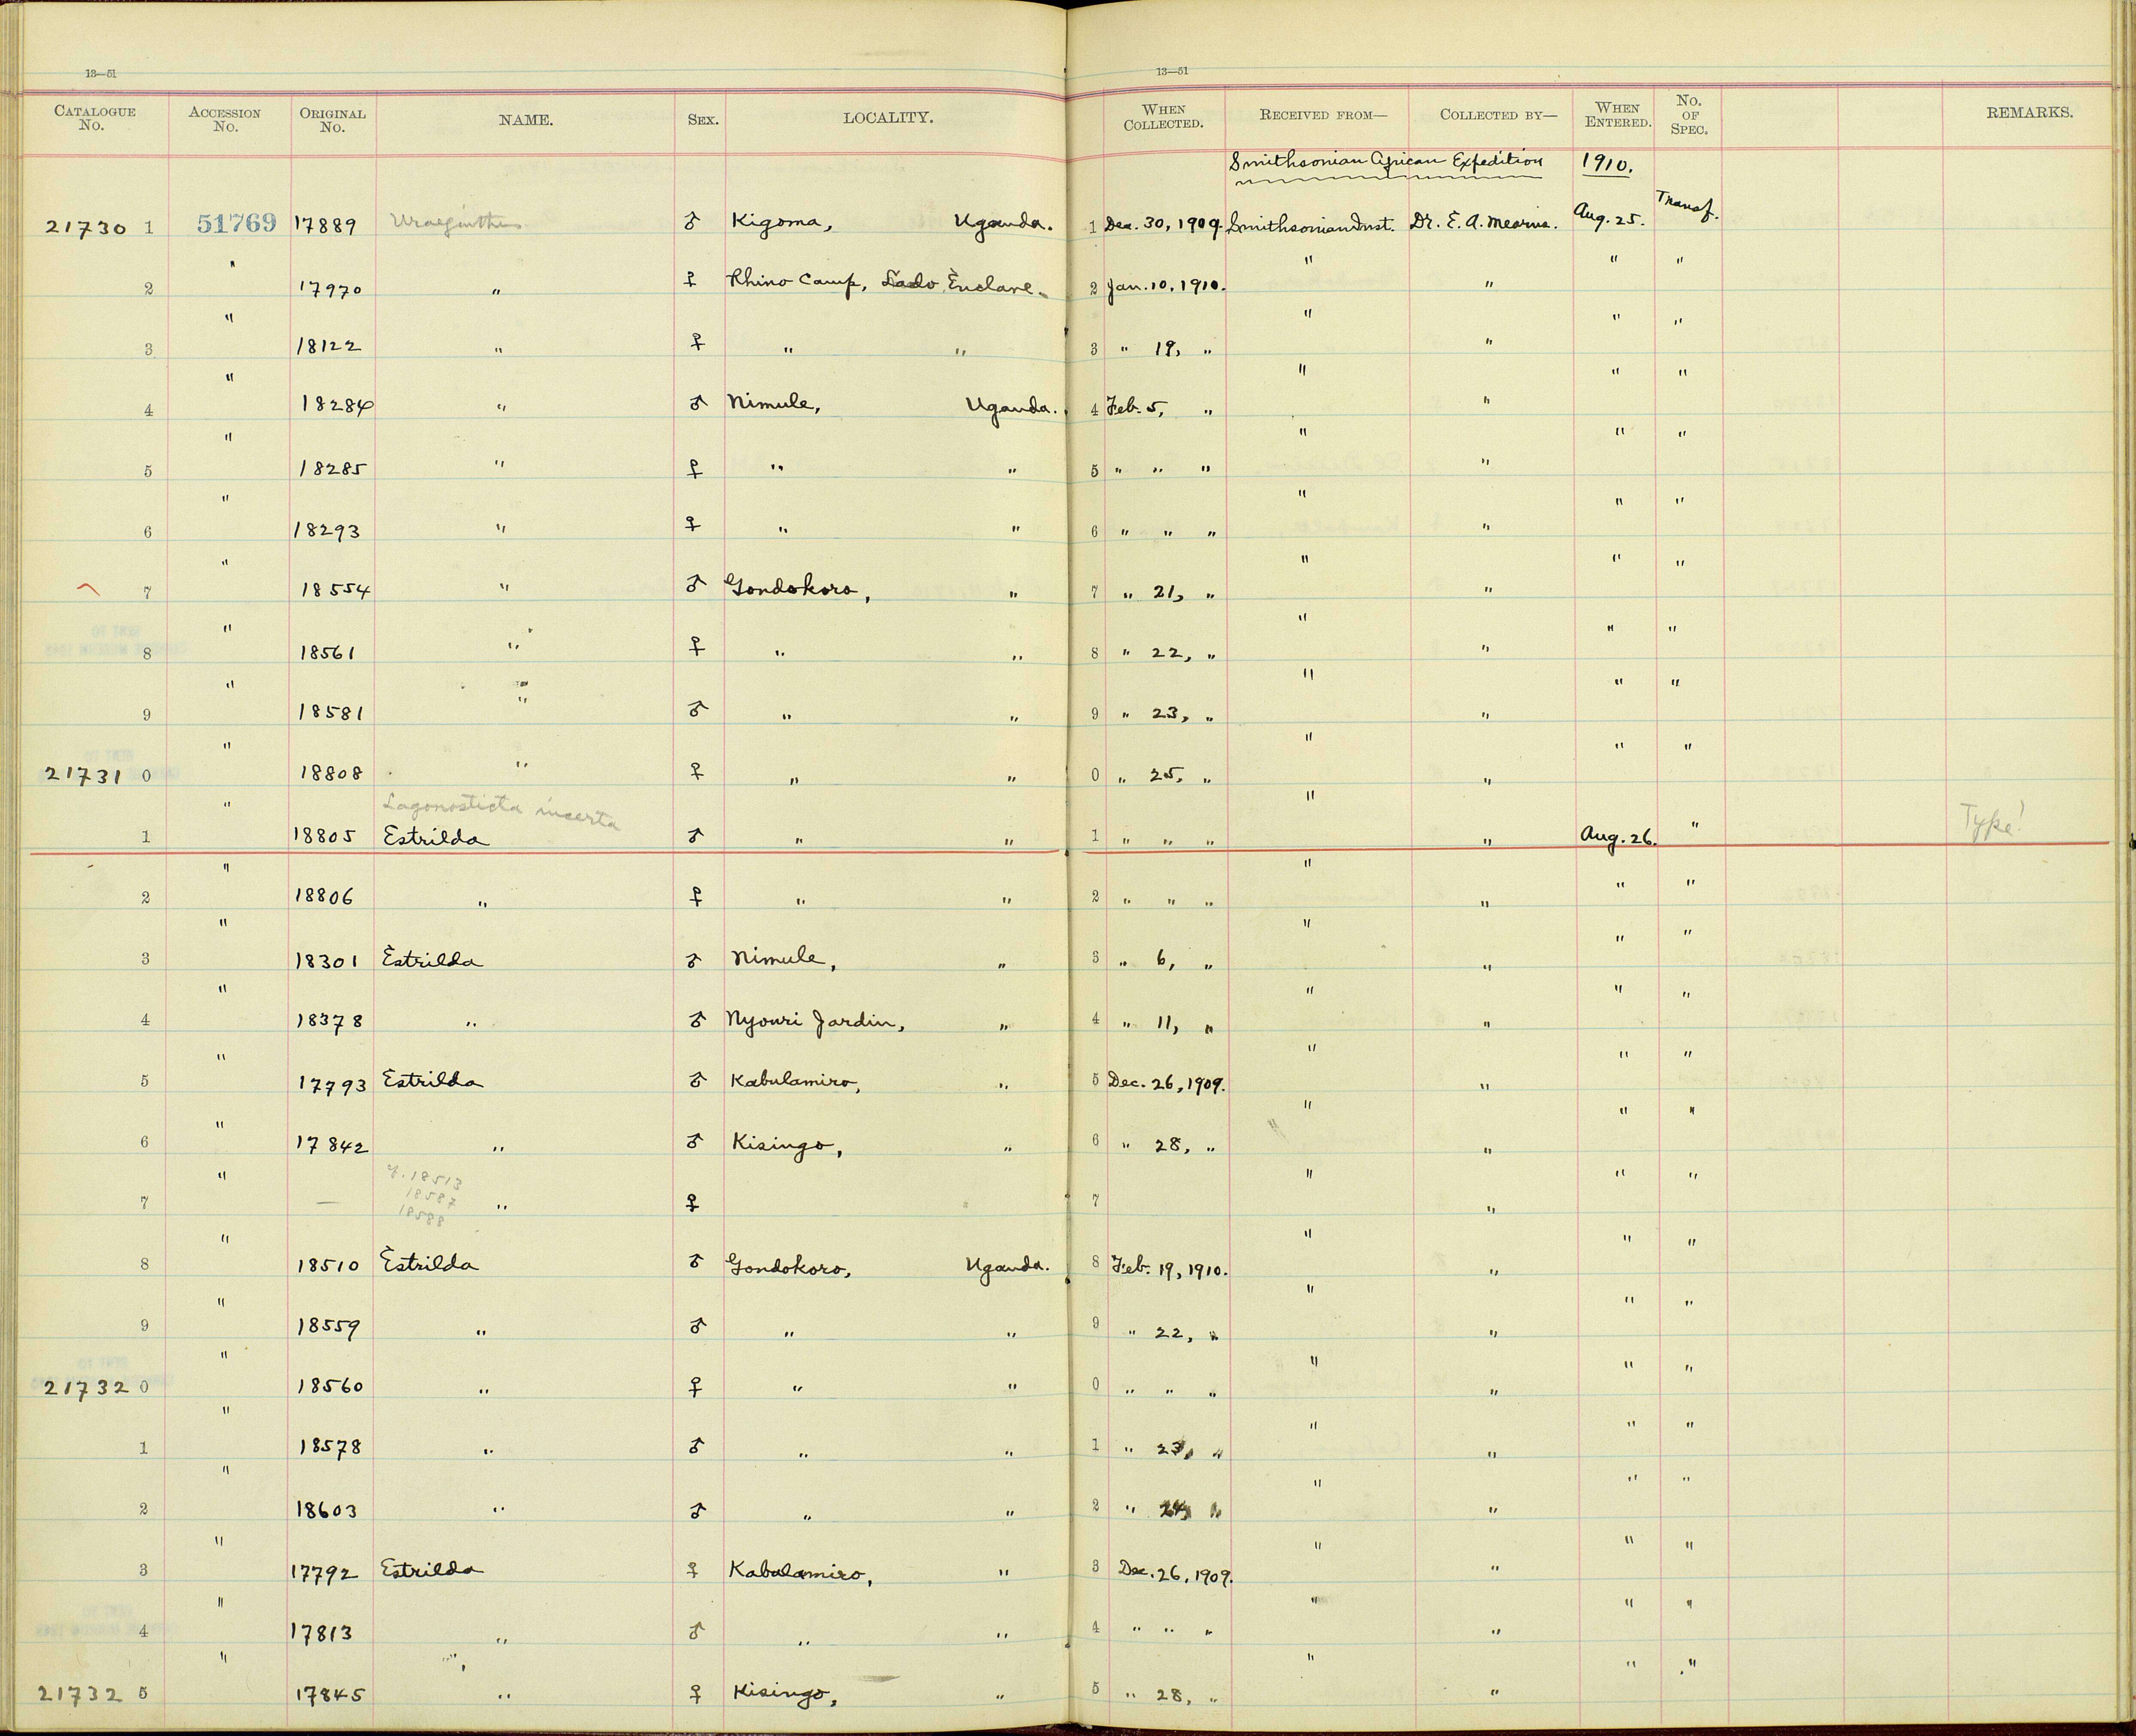 13—51
13—51
CATALOGUE No. ACCESSION No. ORIGINAL No. NAME. SEX. LOCALITY. WHEN COLLECTED. RECEIVED FROM— COLLECTED BY— WHEN ENTERED. No. OF SPEC. REMARKS.
Smithsonian African Expedition 1910.
21730 1 51769 17889 Uraeginthus ♂ Kigoma, Uganda. 1 Dec. 30, 1909. Smithsonian Inst. Dr. E. A. Mearns. Aug. 25. Transf.
2 " 17970 " ♀ Rhino Camp, Lado Enclave. 2 Jan. 10, 1910. " " " "
3 " 18122 " ♀ " " 3 " 19, " " " " "
4 " 18284 " ♂ Nimule, Uganda. 4 Feb. 5, " " " " "
5 " 18285 " ♀ " " 5 " " " " " " "
6 " 18293 " ♀ " " 6 " " " " " " "
7 " 18554 " ♂ Gondokoro, " 7 " 21, " " " " "
8 " 18561 " ♀ " " 8 " 22, " " " " "
9 " 18581 " ♂ " " 9 " 23, " " " " "
21731 0 " 18808 " ♀ " " 0 " 25, " " " " "
Lagonosticta incerta
1 " 18805 Estrilda ♂ " " 1 " " " " " Aug. 26. " Type!
2 " 18806 " ♀ " " 2 " " " " " " "
3 " 18301 Estrilda ♂ Nimule, " 3 " 6, " " " " "
4 " 18378 " ♂ Nyouri Jardin, " 4 " 11, " " " " "
5 " 17793 Estrilda ♂ Kabulamiro, " 5 Dec. 26, 1909. " " " "
6 " 17842 " ♂ Kisingo, " 6 " 28, " " " " "
18513
18587
18588
7 " — " ♀ 7 " " " "
8 " 18510 Estrilda ♂ Gondokoro, Uganda. 8 Feb. 19, 1910. " " " "
9 " 18559 " ♂ " " 9 " 22, " " " " "
21732 0 " 18560 " ♀ " " 0 " " " " " " "
1 " 18578 " ♂ " " 1 " 23, " " " " "
2 " 18603 " ♂ " " 2 " 24, " " " " "
3 " 17792 Estrilda ♀ Kabulamiro, " 3 Dec. 26, 1909. " " " "
4 " 17813 " ♂ " " 4 " " " " " " "
21732 5 " 17845 " ♀ Kisingo, " 5 " 28, " " " " "